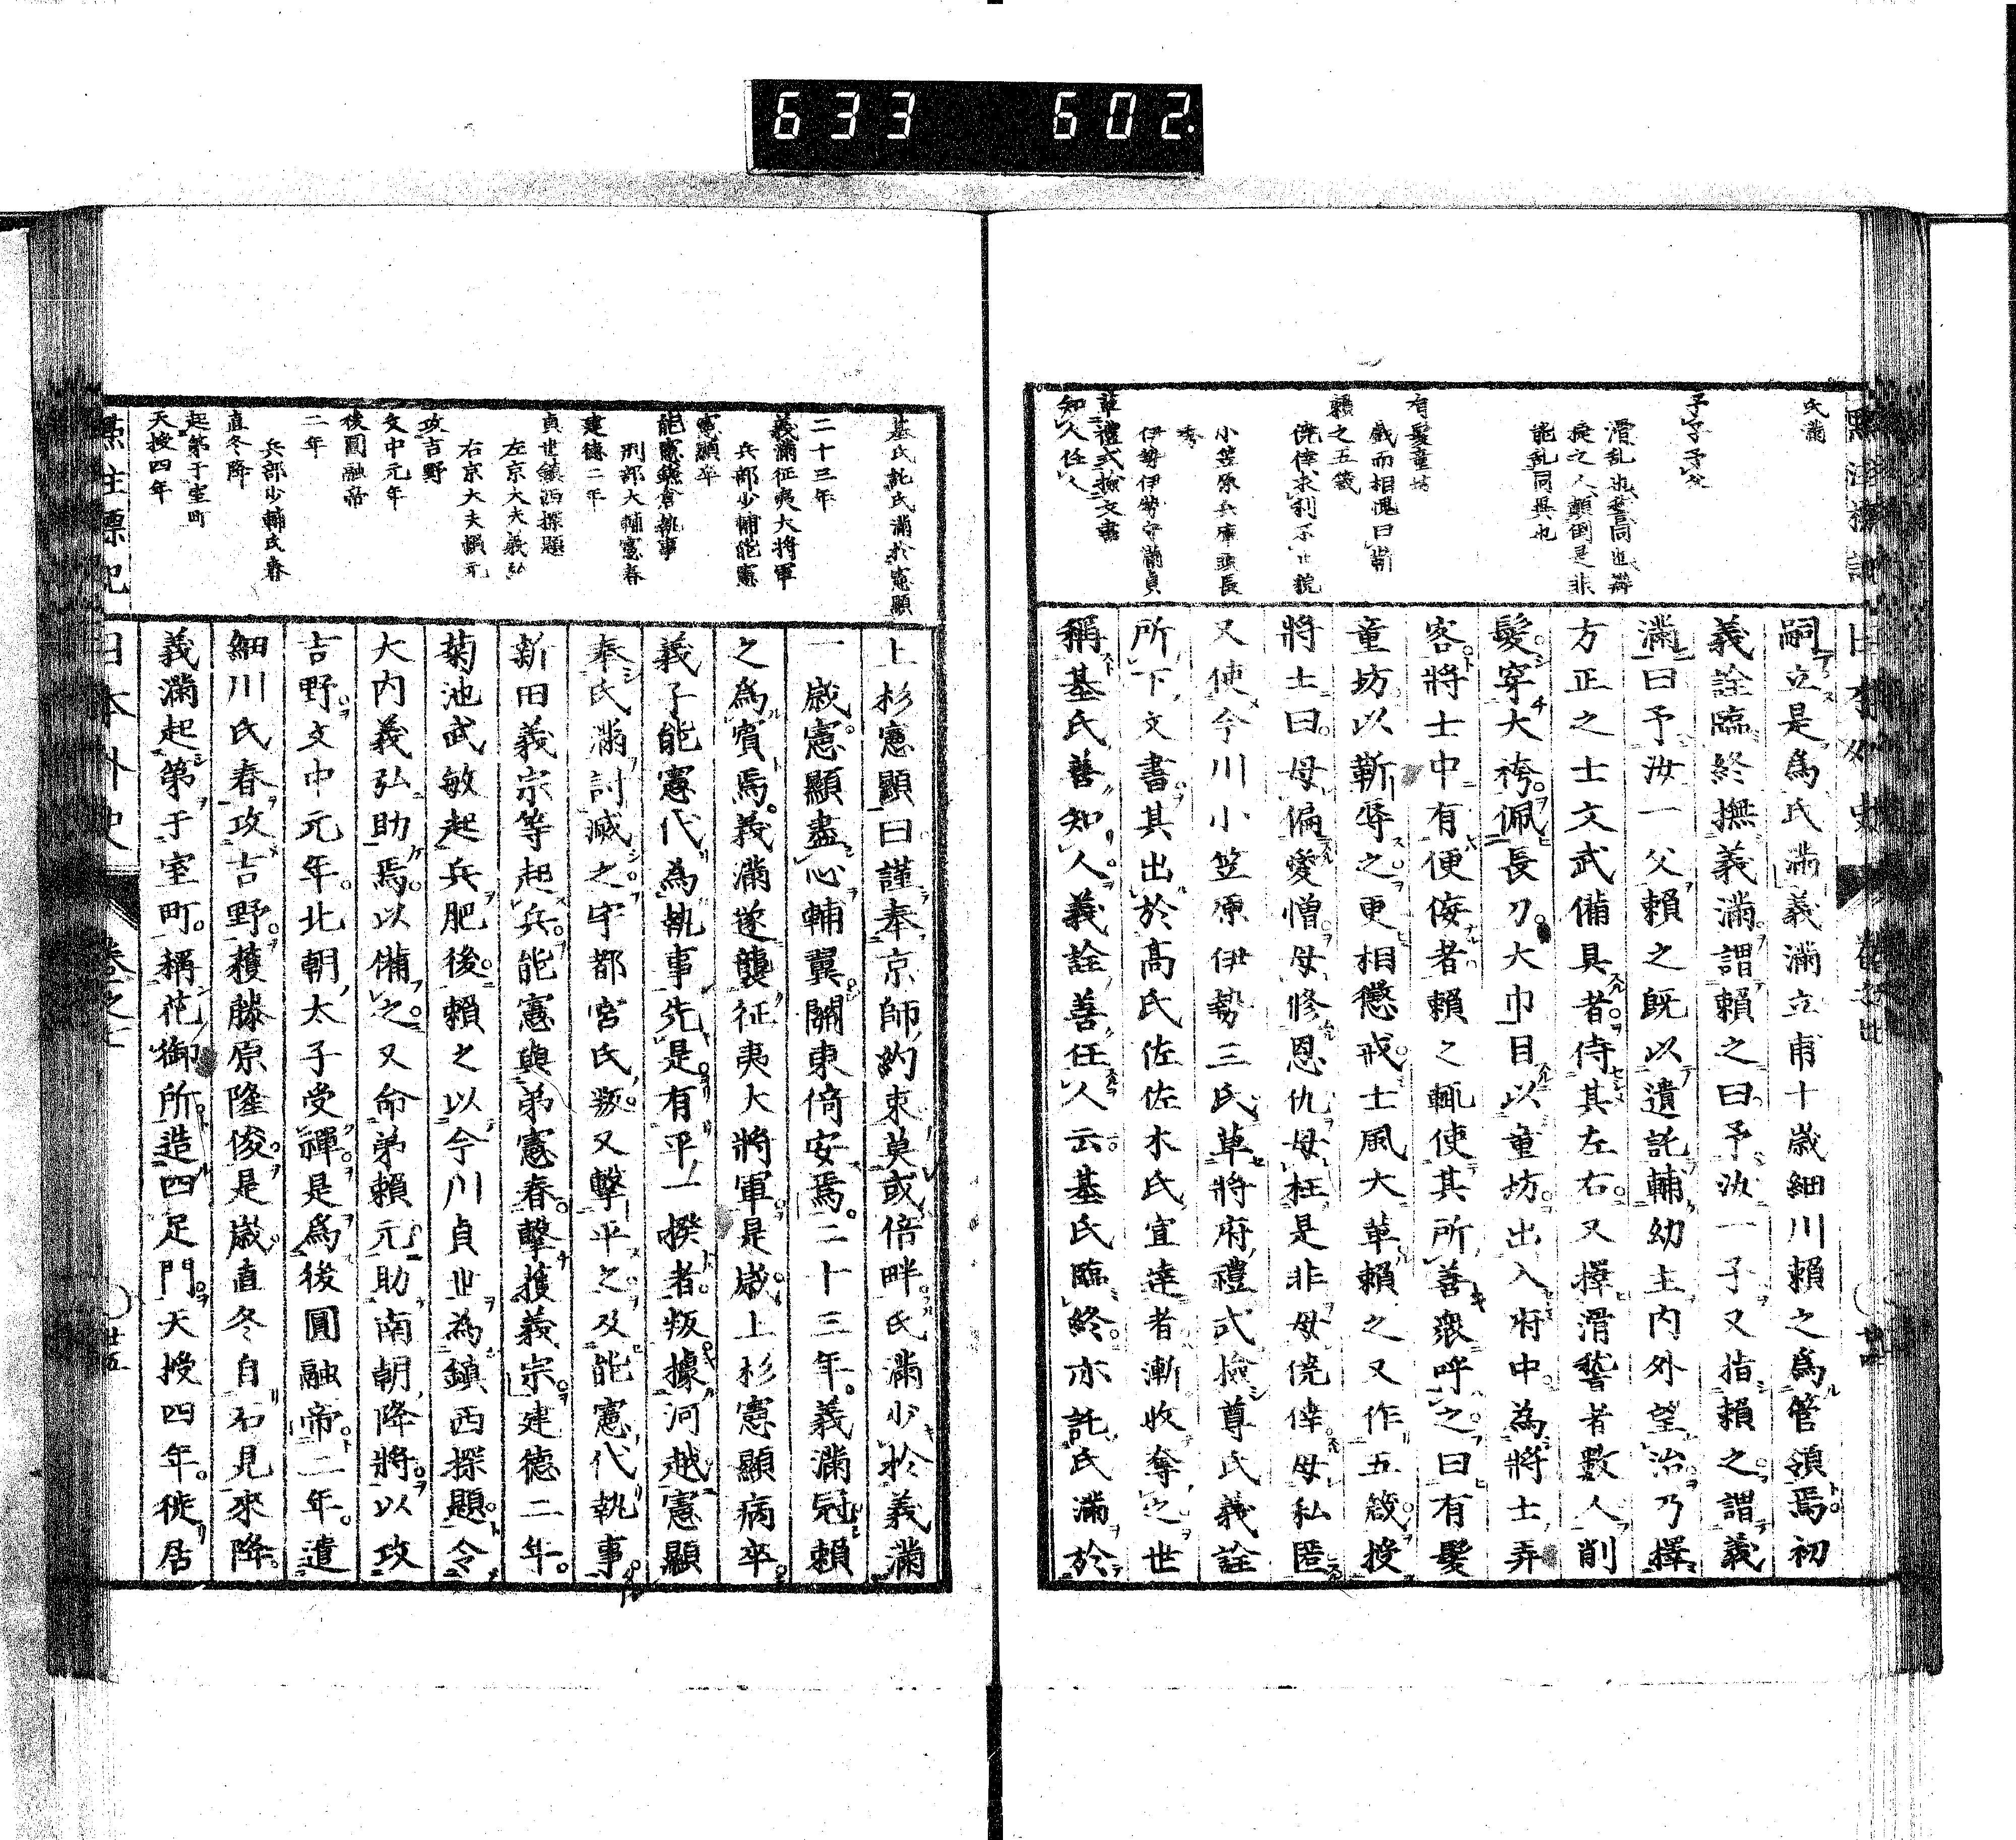 633 602.
氏滿
予字予父
滑乱也稽同也辯
捷之人顛倒是非
能乱同異也
有髮童坊
戲而相愧曰靳
賴之五箴
僥倖求利不止貌
小笠原兵庫頭長
秀
伊勢伊勢守滿貞
草禮式撿文書
知人任人
嗣立是爲氏滿義滿立甫十歲細川賴之爲管領焉初
義詮臨終撫義滿謂賴之曰予汝一子又指賴之謂義
滿曰予汝一父賴之既以遺託輔幼主内外望治乃擇
方正之士文武備具者侍其左右又擇滑稽者數人削
髮穿大袴佩長刀大巾目以童坊出入府中為將士弄
客將士中有便佞者賴之輒使其所善衆呼之曰有髮
童坊以靳辱之更相懲戒士風大革賴之又作五箴授
將士曰母偏愛憎母修恩仇母枉是非母僥倖母私匿
又使今川小笠原伊勢三氏草將府禮式撿尊氏義詮
所下文書其出於高氏佐佐木氏宜達者漸收奪之世
稱基氏善知人義詮善任人云基氏臨終亦託氏滿於
基氏託氏滿於憲顯
二十三年
義滿征夷大將軍
兵部少輔能憲
憲顯卒
能憲鎌倉執事
刑部大輔憲春
建德二年
貞世鎮西探題
左京大夫義弘
右京大夫賴元
攻吉野
文中元年
後圓融帝
二年
兵部少輔氏春
直冬降
起第于室町
天授四年
上杉憲顯曰謹奉京師約束莫或倍畔氏滿少於義滿
一歲憲顯盡心輔翼關東倚安焉二十三年義滿冠賴
之爲賓焉義滿遂襲征夷大將軍是歲上杉憲顯病卒
義子能憲代為執事先是有平一揆者叛據河越憲顯
奉氏滿討滅之宇都宮氏叛又擊平之及能憲代執事
新田義宗等起兵能憲與弟憲春擊獲義宗建德二年
菊池武敏起兵肥後賴之以今川貞世為鎮西探題令
大内義弘助焉以備之又命弟賴元助南朝降將以攻
吉野文中元年北朝太子受禪是爲後圓融帝二年遣
細川氏春攻吉野獲藤原隆俊是歲直冬自石見來降
義滿起第于室町稱花御所造四足門天授四年徙居
標記
日本外史
卷之七
廿五